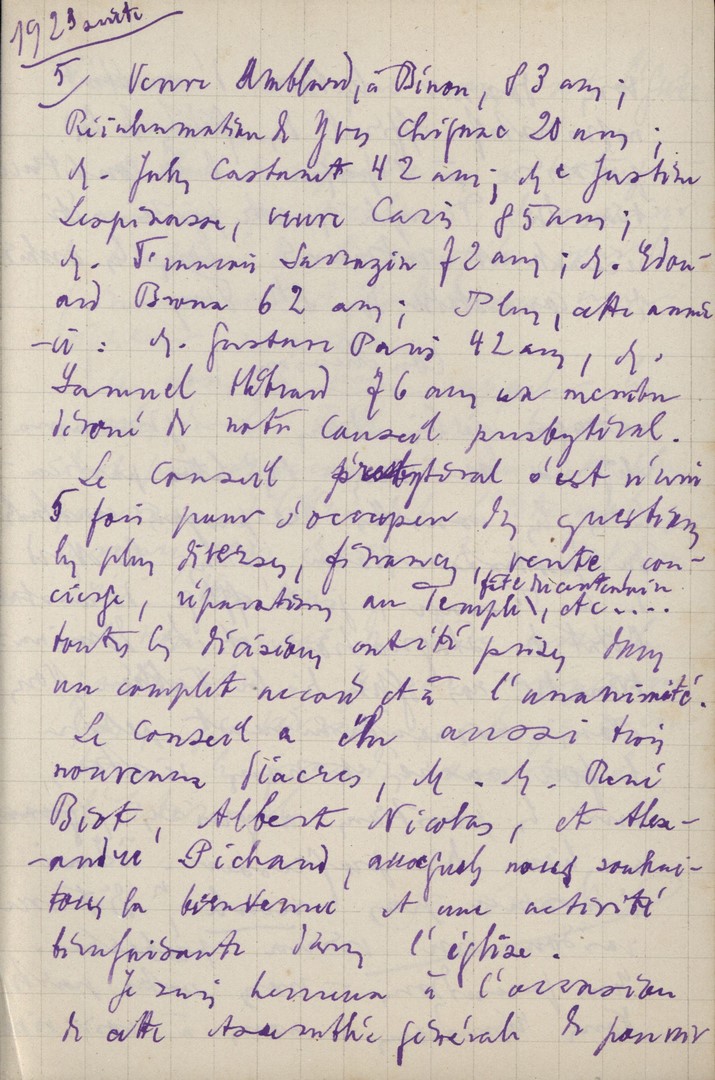 1923 suite
5/ Veuve Amblard, à Binou, 83 ans ;
Réinhumation de Yves Chignac 20 ans ;
M. July Castanet 42 ans ; Me Justine
Lespinasse, veuve Caris 85 ans ;
M. François Sarrazin 72 ans ; M. Edou-
ard Broua 62 ans ; Plus, cette année
-ci : M. Gustave Paris 42 ans, M.
Samuel Hébrard 76 ans un membre
dévoué de notre Conseil presbytéral.
Le Conseil presbytéral s'est réuni
5 fois pour s'occuper des questions
les plus diverses, finances, vente, con-
cierge, réparations au Temple, fête tricentenaire, etc....
toutes les décisions ont été prises dans
un complet accord et à l'unanimité.
Le Conseil a élu aussi trois
nouveaux diacres, M. M. René
Bist, Albert Nicolas, et Alex-
-andre Pichard, auxquels nous souhai-
tons la bienvenue et une activité
bienfaisante dans l'église.
Je suis heureux à l'occasion
de cette Assemblée générale de pouvoir